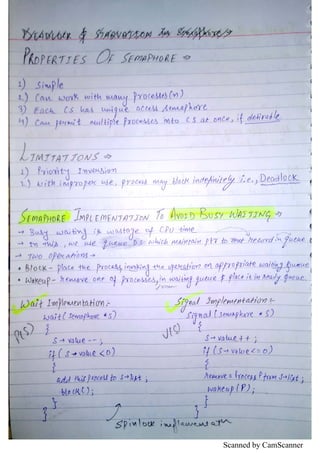 DEADLOCK & STARVATION In Semaphore →
PROPERTIES OF SEMAPHORE →
1) Simple
2) Can work with many processes (n)
3) Each CS has unique access semaphore
4) Can permit multiple Processes into CS at once, if desirable
LIMITATIONS →
1) Priority Inversion
2) With improper use, process may block indefinitely i.e., Deadlock
SEMAPHORE IMPLEMENTATION To AVOID BUSY WAITING →
→ Busy waiting is wastage of CPU time
→ In this, we use Queue D.S. which maintain ptr to record in queue
→ Two operations →
• Block - place the Process invoking the operation on appropriate waiting Queue
• Wakeup - Remove one of processes in waiting queue & place it in Ready Queue
Wait Implementation:-
wait (semaphore *S)
P(S) {
S → value --;
if (S → value < 0)
{
add this process to S → list;
block();
}
}
Signal Implementation:-
signal (semaphore *S)
V(S) {
S → value ++;
if (S → value <= 0)
{
remove a Process P from S → list;
wakeup (P);
}
}
spinlock
Scanned by CamScanner